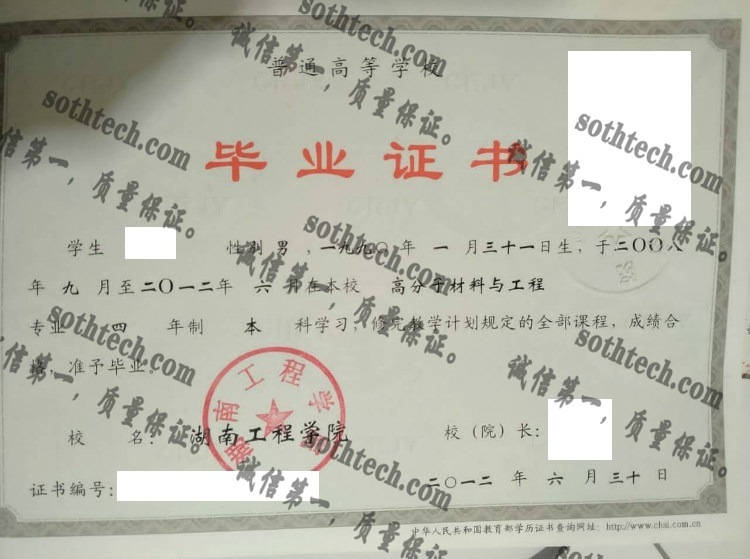 普通高等学校
毕业证书
学生 性别 男 ，一九九〇年 一 月三十一日生，于二〇〇八
年 九 月至二〇一二年 六 月在本校 高分子材料与工程
专业 四 年制 本 科学习，修完教学计划规定的全部课程，成绩合
格，准予毕业。
湖南工程学院
校 名： 湖南工程学院 校（院）长：
二〇一二 年 六 月 三十 日
证书编号：
中华人民共和国教育部学历证书查询网址：http://www.chsi.com.cn
sothtech.com
诚信第一，质量保证。
sothtech.com
诚信第一，质量保证。
sothtech.com
诚信第一，质量保证。
sothtech.com
诚信第一，质量保证。
sothtech.com
诚信第一，质量保证。
sothtech.com
诚信第一，质量保证。
sothtech.com
诚信第一，质量保证。